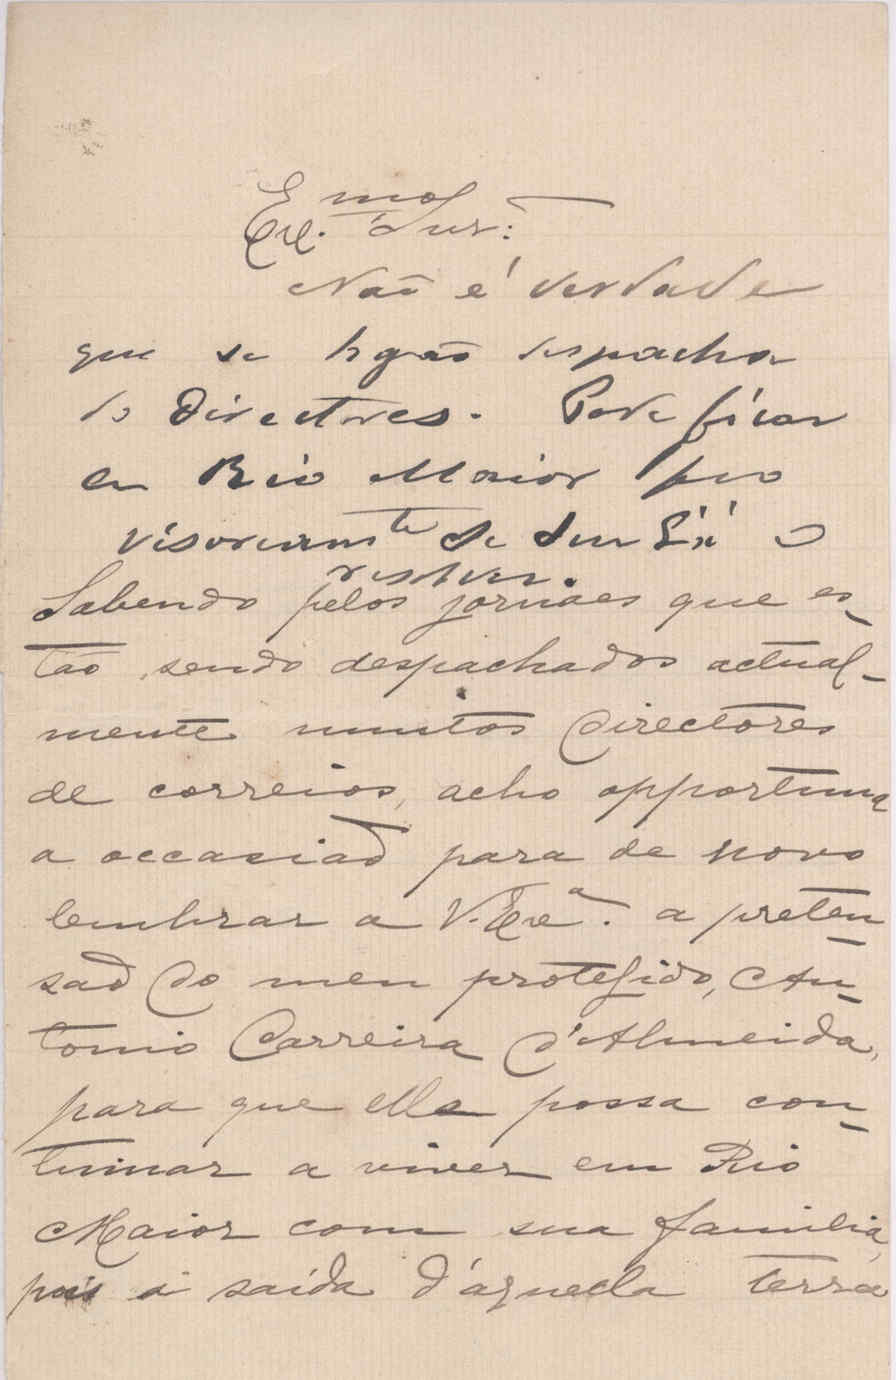 Ex.mo Snr:
Não é verdade
que se hajão despacha
do Directores. Pode ficar
em Rio Maior pro
visoriamente se Sua Exª o
resolver.
Sabendo pelos jornaes que es-
tão sendo despachados actual-
mente muitos directores
de correios, acho opportuna
a occasião para de novo
lembrar a V. Exª. a preten-
são do meu protegido, An-
tonio Carreira d'Almeida,
para que elle possa con-
tinuar a viver em Rio
Maior com sua familia,
pois a saída d'aquella terra